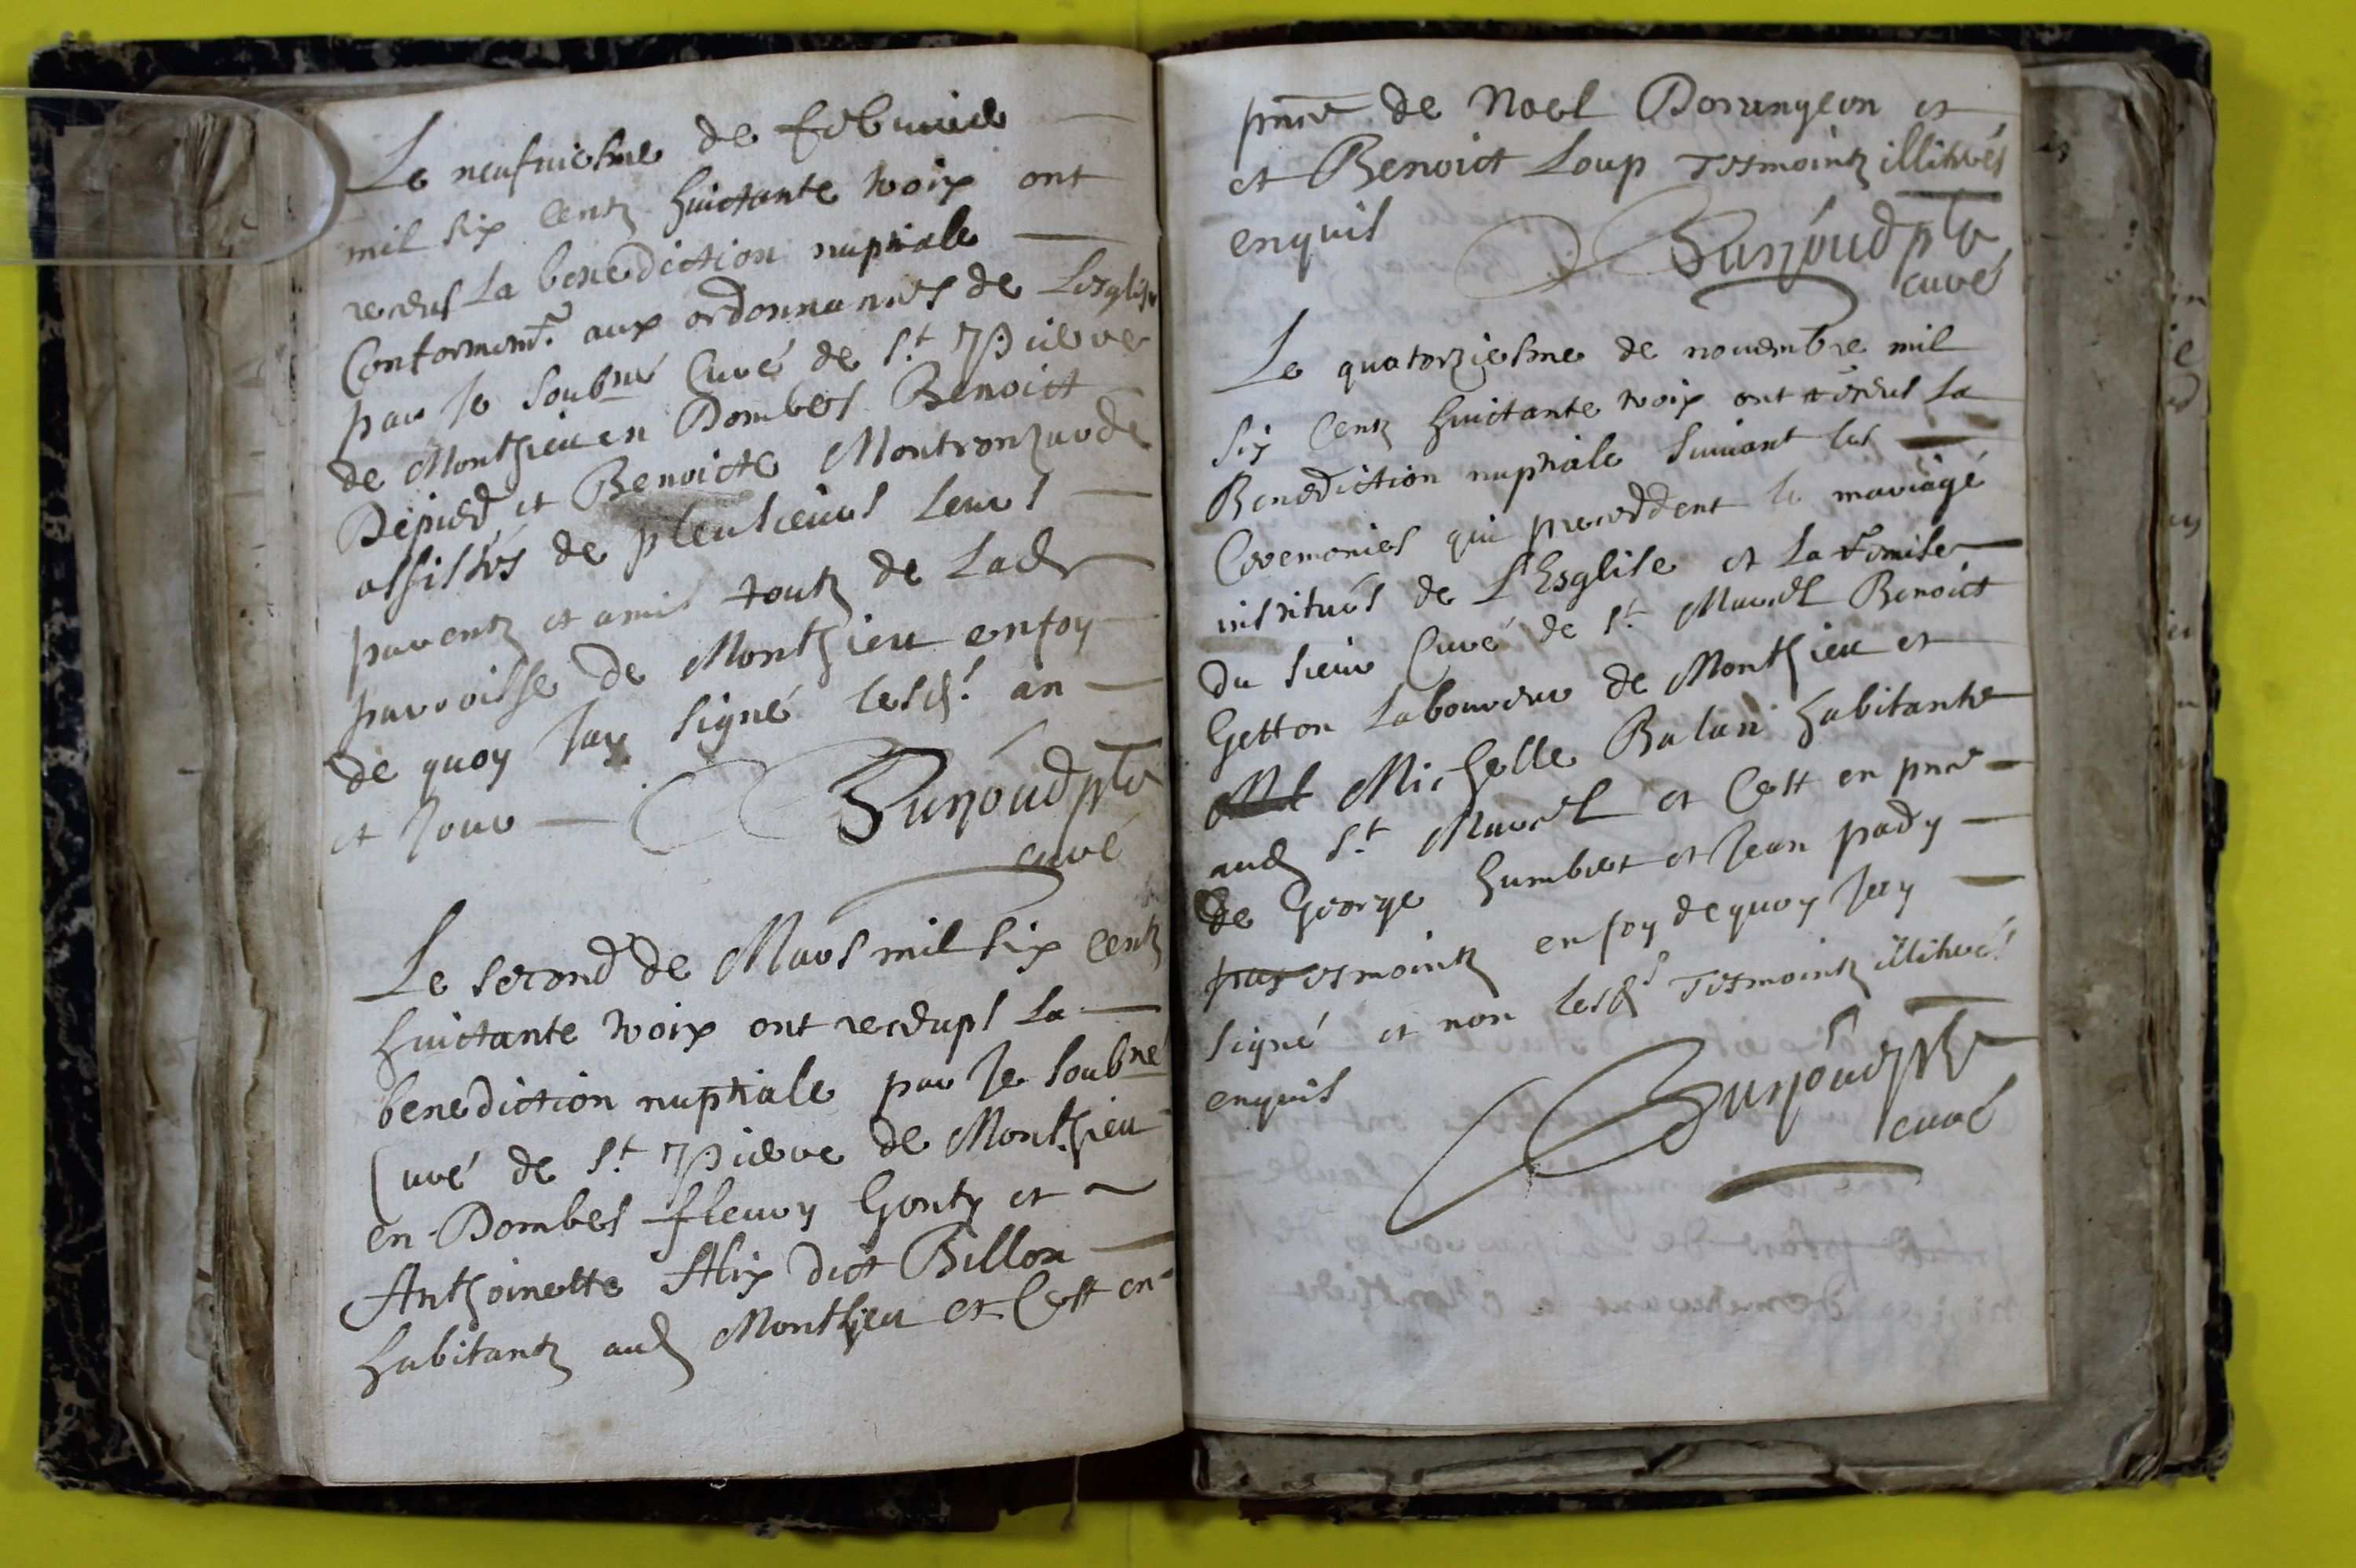 Le neufviesme de febvrier
mil six centz huictante troix ont
receus La benediction nuptiale
Conformemt. aux ordonnances de Lesglise
par Je soubné Curé de St Pierre
de Monthieu en Dombes Benoict
Depied et Benoicte
assistés de pleusieurs Leurs
parentz et amis toutz de Lad
parroisse de Monthieu en foy
de quoy Jay signé lesd. an
et Jour
ptre
curé
Le second de Mars mil six centz
huictante troix ont receups La
benediction nuptiale par Je soubné
Curé de St Pierre de Monthieu
en Dombes fleury Gonty et
Anthoinette Alix dict Billon
habitantz aud Monthieu et Cest en
pnce de Noel et
et Benoict Loup Tesmointz illiterés
enquis
ptre
curé
Le quatorziesme de novembre mil
six Centz huictante troix ont receus La
Benediction nuptiale suivant les
Ceremonies qui precedent le mariage
institués de L'Esglise et La remise
du sieur Curé de St Marcel Benoict
Getton Laboureur de Monthieu et
Michelle Balan habitante
aud St Marcel et Cest en pnce
de George humbert et Jean pady
tesmointz en foy de quoy Jay
signé et non lesds Tesmointz illiterés
enquis
ptre
curé